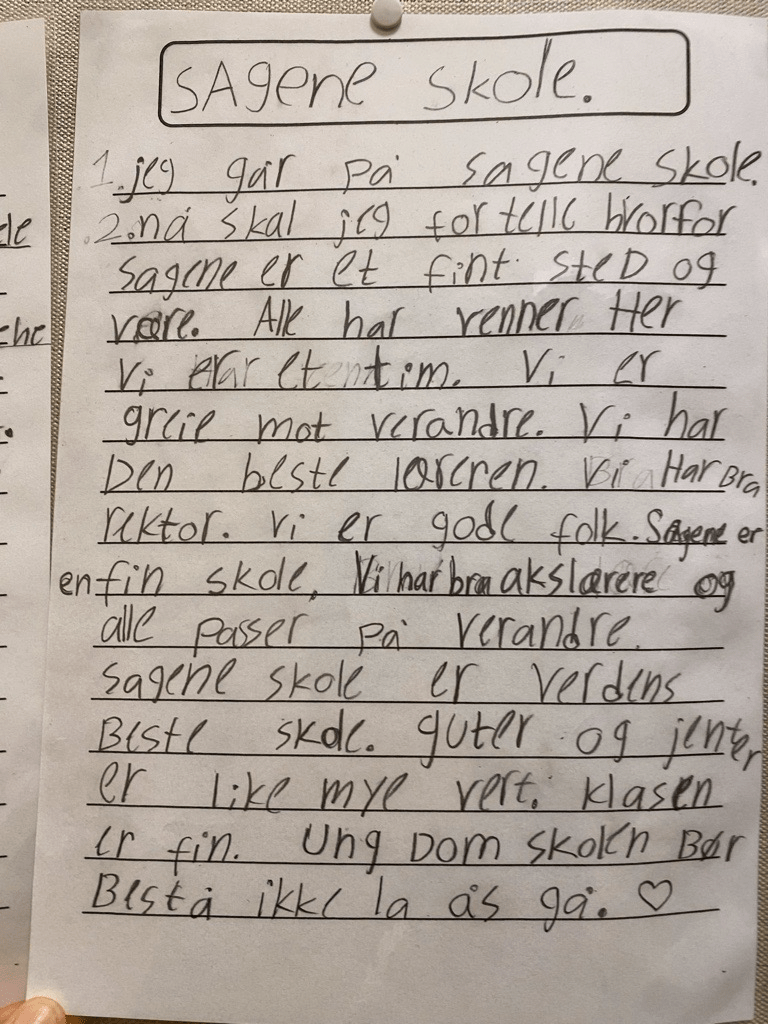 SAgene skole.
1. jeg går på sagene skole.
2. nå skal jeg for telle hvorfor
sagene er et fint steD og
være. Alle har venner Her
Vi er et tim. Vi er
greie mot verandre. Vi har
Den beste læreren. Vi Har Bra
rektor. Vi er gode folk. Sagene er
en fin skole. Vi har bra akslærere og
alle passer på verandre.
sagene skole er verdens
Beste skole. guter og jenter
er like mye vert. klasen
er fin. Ung Dom skolen Bør
Bestå ikke la ås gå. ♡
de
che